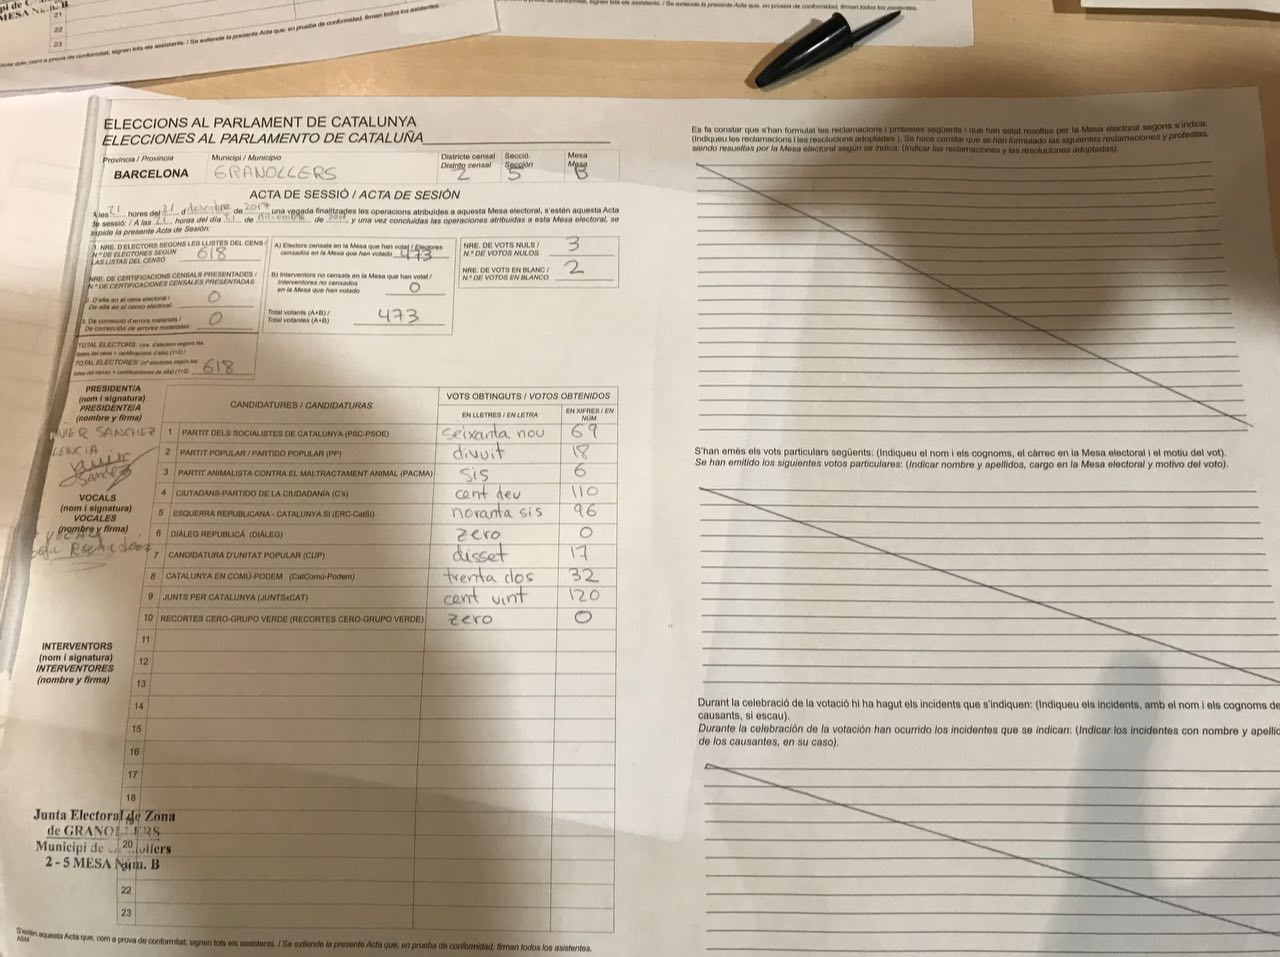 ELECCIONS AL PARLAMENT DE CATALUNYA
ELECCIONES AL PARLAMENTO DE CATALUÑA
Província / Provincia
Municipi / Municipio
Districte censal
Distrito censal
Secció
Sección
Mesa
Mesa
BARCELONA GRANOLLERS 2 5 B
ACTA DE SESSIÓ / ACTA DE SESIÓN
A les 21 hores del 21 d desembre de 2017 una vegada finalitzades les operacions atribuïdes a aquesta Mesa electoral, s'estén aquesta Acta
de sessió: / A las 21 horas del día 21 de diciembre de 2017 y una vez concluidas las operaciones atribuidas a esta Mesa electoral, se
expide la presente Acta de Sesión:
1. NRE. D'ELECTORS SEGONS LES LLISTES DEL CENS /
N.º DE ELECTORES SEGÚN
LAS LISTAS DEL CENSO 618
NRE. DE CERTIFICACIONS CENSALS PRESENTADES /
N.º DE CERTIFICACIONES CENSALES PRESENTADAS
2. D'alta en el cens electoral /
De alta en el censo electoral: 0
3. De correcció d'errors materials /
De corrección de errores materiales: 0
TOTAL ELECTORS: (nre. d'electors segons les
llistes del cens + certificacions d'alta) (1+2) /
TOTAL ELECTORES: (nº electores según las
listas del censo + certificaciones de alta) (1+2) 618
A) Electors censats en la Mesa que han votat / Electores
censados en la Mesa que han votado 473
B) Interventors no censats en la Mesa que han votat /
Interventores no censados
en la Mesa que han votado 0
Total votants (A+B) /
Total votantes (A+B) 473
NRE. DE VOTS NULS /
N.º DE VOTOS NULOS 3
NRE. DE VOTS EN BLANC /
N.º DE VOTOS EN BLANCO 2
PRESIDENT/A
(nom i signatura)
PRESIDENTE/A
(nombre y firma)
SANCHEZ
VOCALS
(nom i signatura)
VOCALES
(nombre y firma)
INTERVENTORS
(nom i signatura)
INTERVENTORES
(nombre y firma)
CANDIDATURES / CANDIDATURAS
VOTS OBTINGUTS / VOTOS OBTENIDOS
EN LLETRES / EN LETRA
EN XIFRES / EN
NÚM
1 PARTIT DELS SOCIALISTES DE CATALUNYA (PSC-PSOE) seixanta nou 69
2 PARTIT POPULAR / PARTIDO POPULAR (PP) divuit 18
3 PARTIT ANIMALISTA CONTRA EL MALTRACTAMENT ANIMAL (PACMA) sis 6
4 CIUTADANS-PARTIDO DE LA CIUDADANÍA (C's) cent deu 110
5 ESQUERRA REPUBLICANA - CATALUNYA SÍ (ERC-CatSí) noranta sis 96
6 DIÀLEG REPUBLICÀ (DIÀLEG) zero 0
7 CANDIDATURA D'UNITAT POPULAR (CUP) disset 17
8 CATALUNYA EN COMÚ-PODEM (CatComú-Podem) trenta dos 32
9 JUNTS PER CATALUNYA (JUNTSxCAT) cent vint 120
10 RECORTES CERO-GRUPO VERDE (RECORTES CERO-GRUPO VERDE) zero 0
11
12
13
14
15
16
17
18
20
22
23
Junta Electoral de Zona
de GRANOLLERS
Municipi de Granollers
2 - 5 MESA Núm. B
S'estén aquesta Acta que, com a prova de conformitat, signen tots els assistents. / Se extiende la presente Acta que, en prueba de conformidad, firman todos los asistentes.
Es fa constar que s'han formulat les reclamacions i protestes següents i que han estat resoltes per la Mesa electoral segons s'indica:
(Indiqueu les reclamacions i les resolucions adoptades). Se hace constar que se han formulado las siguientes reclamaciones y protestas,
siendo resueltas por la Mesa electoral según se indica: (Indicar las reclamaciones y las resoluciones adoptadas).
S'han emès els vots particulars següents: (Indiqueu el nom i els cognoms, el càrrec en la Mesa electoral i el motiu del vot).
Se han emitido los siguientes votos particulares: (Indicar nombre y apellidos, cargo en la Mesa electoral y motivo del voto).
Durant la celebració de la votació hi ha hagut els incidents que s'indiquen: (Indiqueu els incidents, amb el nom i els cognoms de
causants, si escau).
Durante la celebración de la votación han ocurrido los incidentes que se indican: (Indicar los incidentes con nombre y apellid
de los causantes, en su caso).